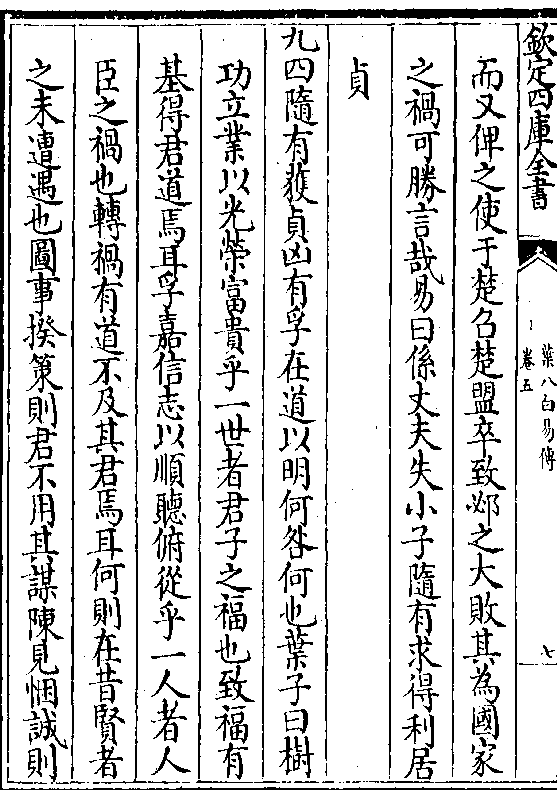 欽定四庫全書
葉八白易傳
卷五
七
而又俾之使于楚召楚盟卒致邲之大敗其為國家
之禍可勝言哉易曰係丈夫失小子隨有求得利居
貞
九四隨有獲貞凶有孚在道以明何咎何也葉子曰樹
功立業以光榮富貴乎一世者君子之福也致福有
基得君道焉耳孚嘉信志以順聽俯從乎一人者人
臣之禍也轉禍有道不及其君焉耳何則在昔賢者
之未遭遇也圖事揆策則君不用其謀陳見悃誠則